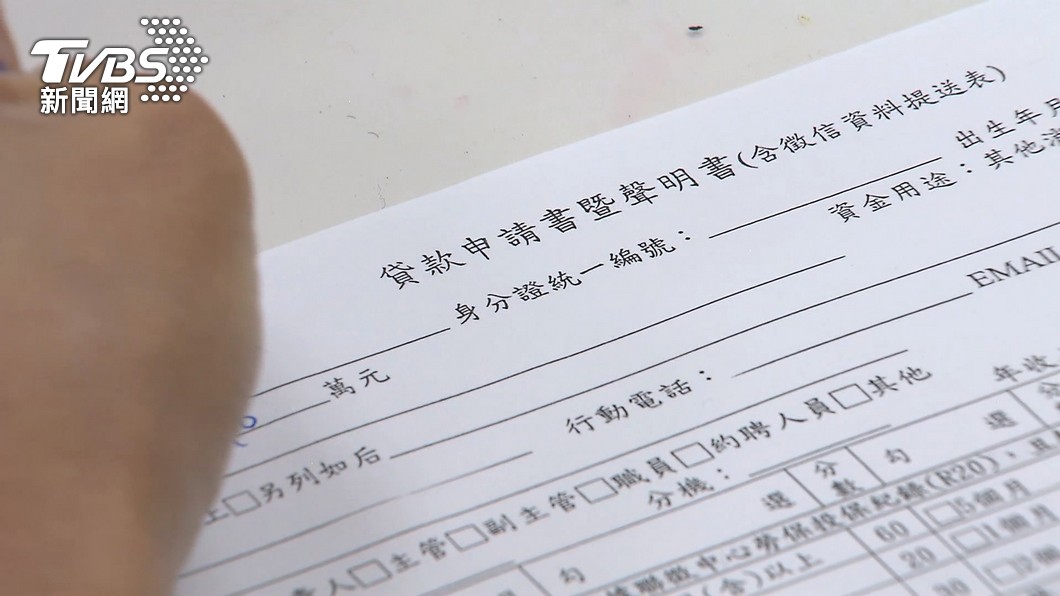 TVBS
新聞網
貸款申請書暨聲明書(含徵信資料提送表)
身分證統一編號： 出生年月
萬元 資金用途：其他
行動電話： EMAIL
□另列如後
□主管□副主管□職員□約聘人員□其他 年收
分機：
勾 選 分數 勾 選 分
聯徵中心勞保投保紀錄(R20)、且
(含)以上 60 □5個月
20 □1個月
30